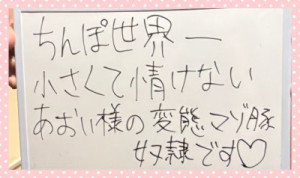 ちんぽ世界一
小さくて情けない
あおい様の変態マゾ豚
奴隷です♡